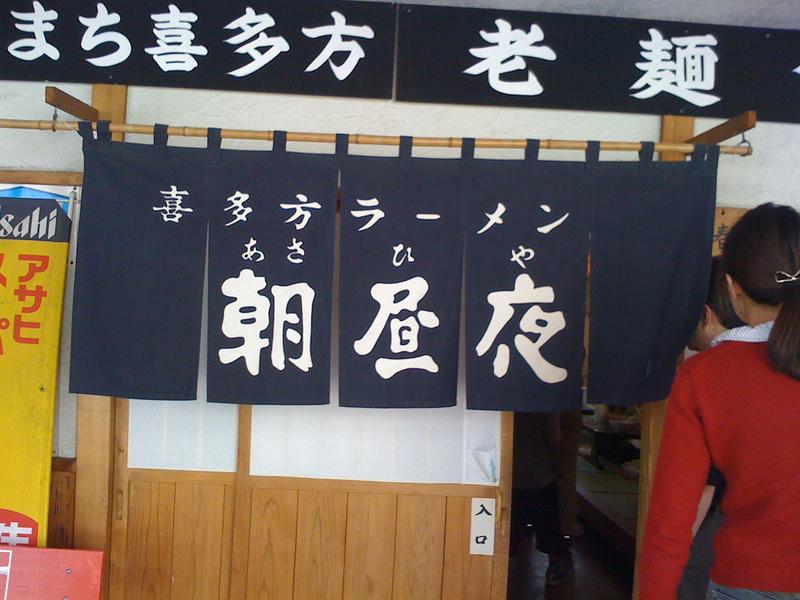 まち喜多方 老麺
喜多方ラーメン
あさ ひ や
朝 昼 夜
Asahi
アサヒ
入口